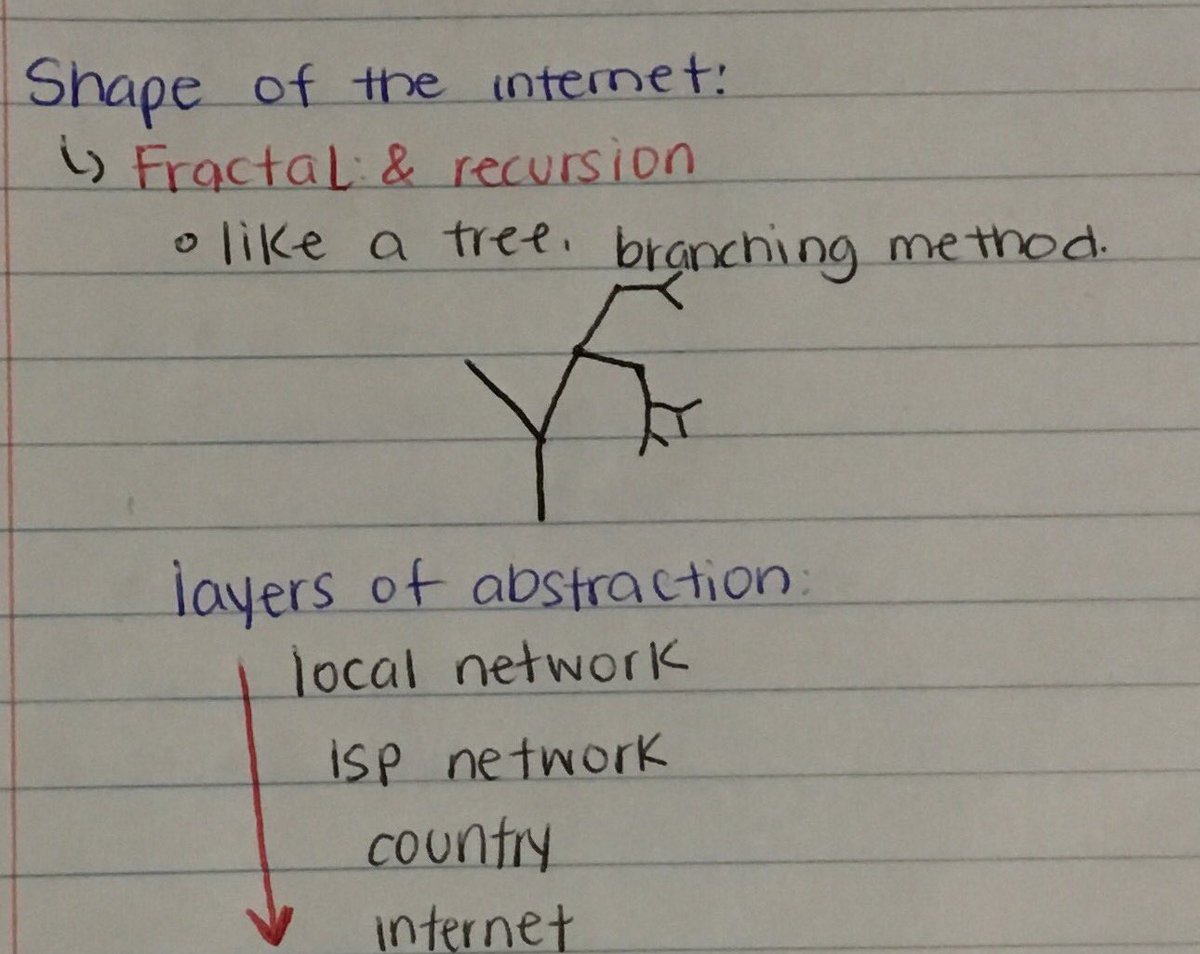 Shape of the internet:
↳ Fractal: & recursion
o like a tree. branching method.
layers of abstraction:
local network
isp network
country
internet